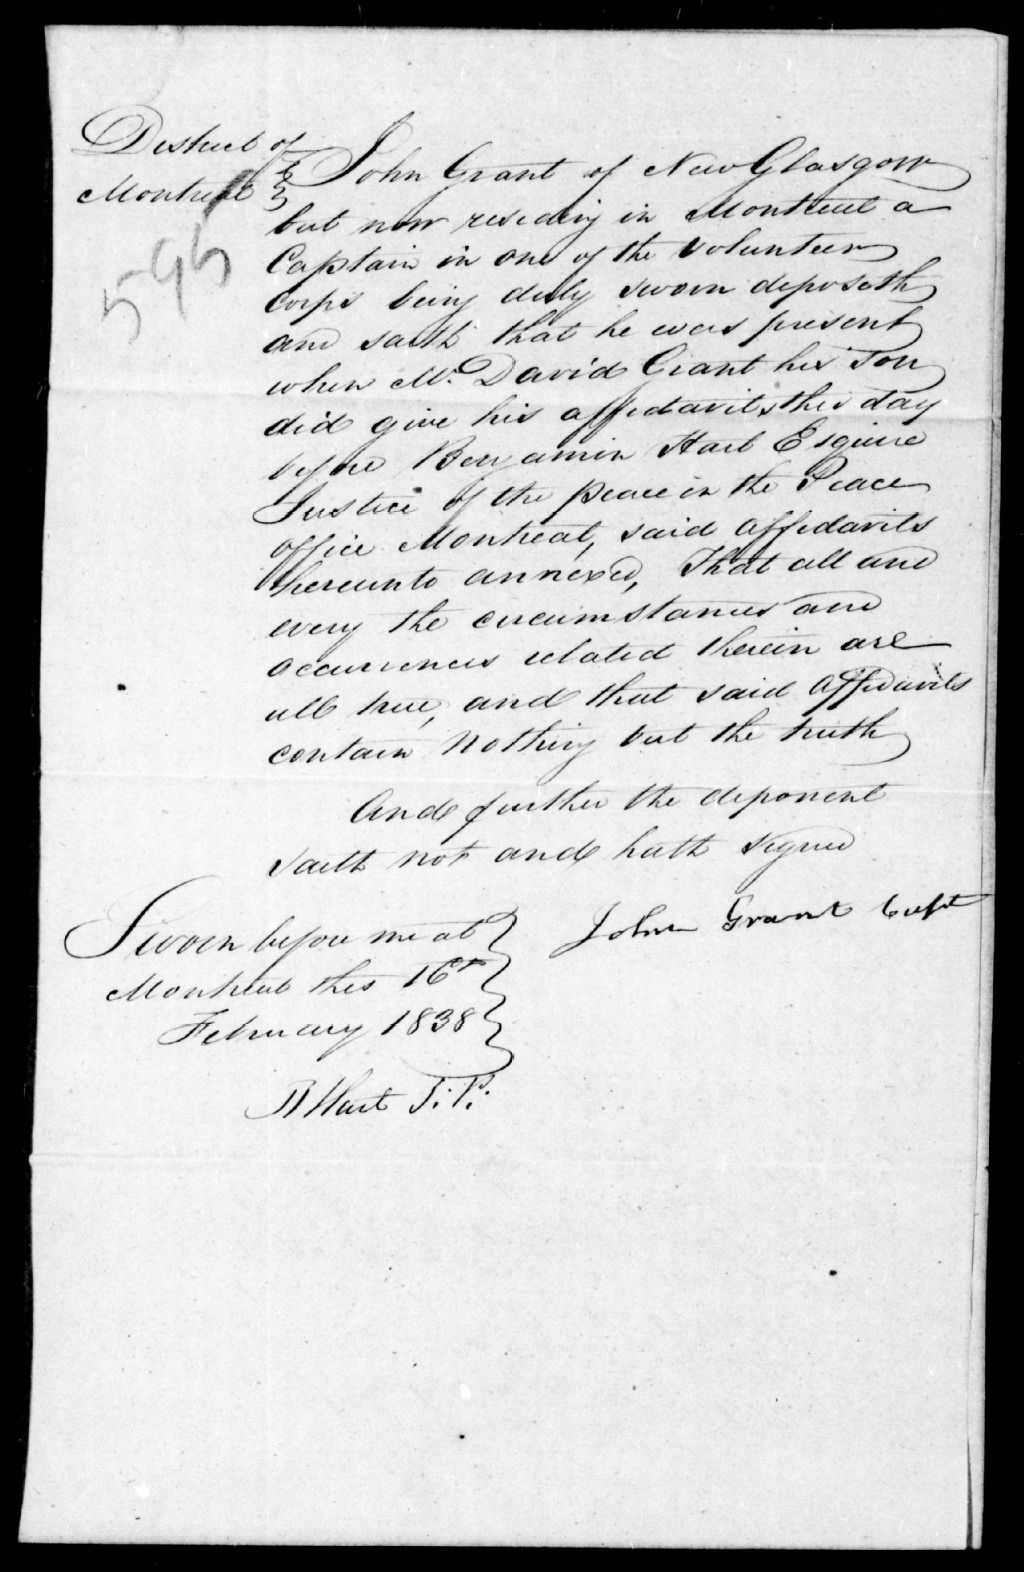 District of
Montreal
595
John Grant of New Glasgow
but now residing in Montreal a
Captain in one of the Volunteer
Corps being duly sworn deposeth
and saith that he was present
when Mr. David Grant his son
did give his affidavits this day
before Benjamin Hart Esquire
Justice of the peace in the Peace
office Montreal, said affidavits
hereunto annexed, That all and
every the circumstances and
occurrences related therein are
all true, and that said affidavits
contain nothing but the truth
And further the deponent
saith not and hath signed
John Grant Capt
Sworn before me at
Montreal this 16th
February 1838
B Hart J.P.